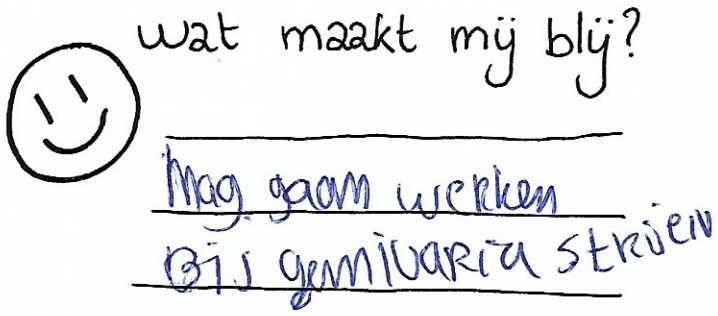 wat maakt mij blij?
Mag gaan werken
Bij gemivaria strijen